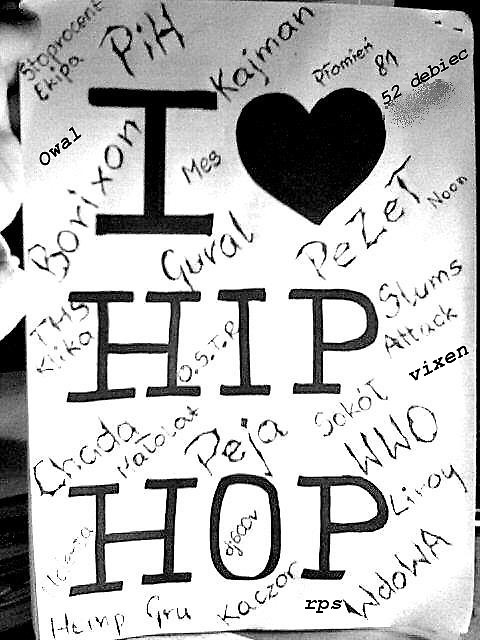 Stoprocent
Ekipa
PiH
Kajman
Płomień
81
52 debiec
Owal
I
Borixon
Mes
Gural
PeZeT
Noon
THS
Klika
HIP
O.S.T.R
Slums
Attack
vixen
Chada
Peja
Sokół
WWO
Liroy
HOP
Hemp Gru
Kaczor
rps
WdoWA